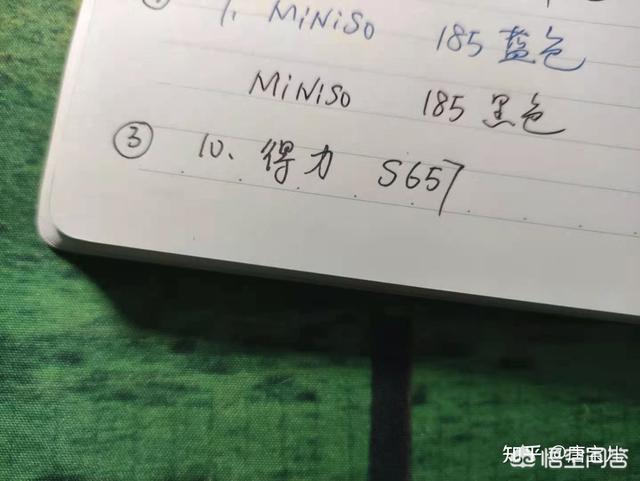 1. MiNiSo 185 蓝色
MiNiSo 185 黑色
③ 10、得力 S657
知乎
悟空问答